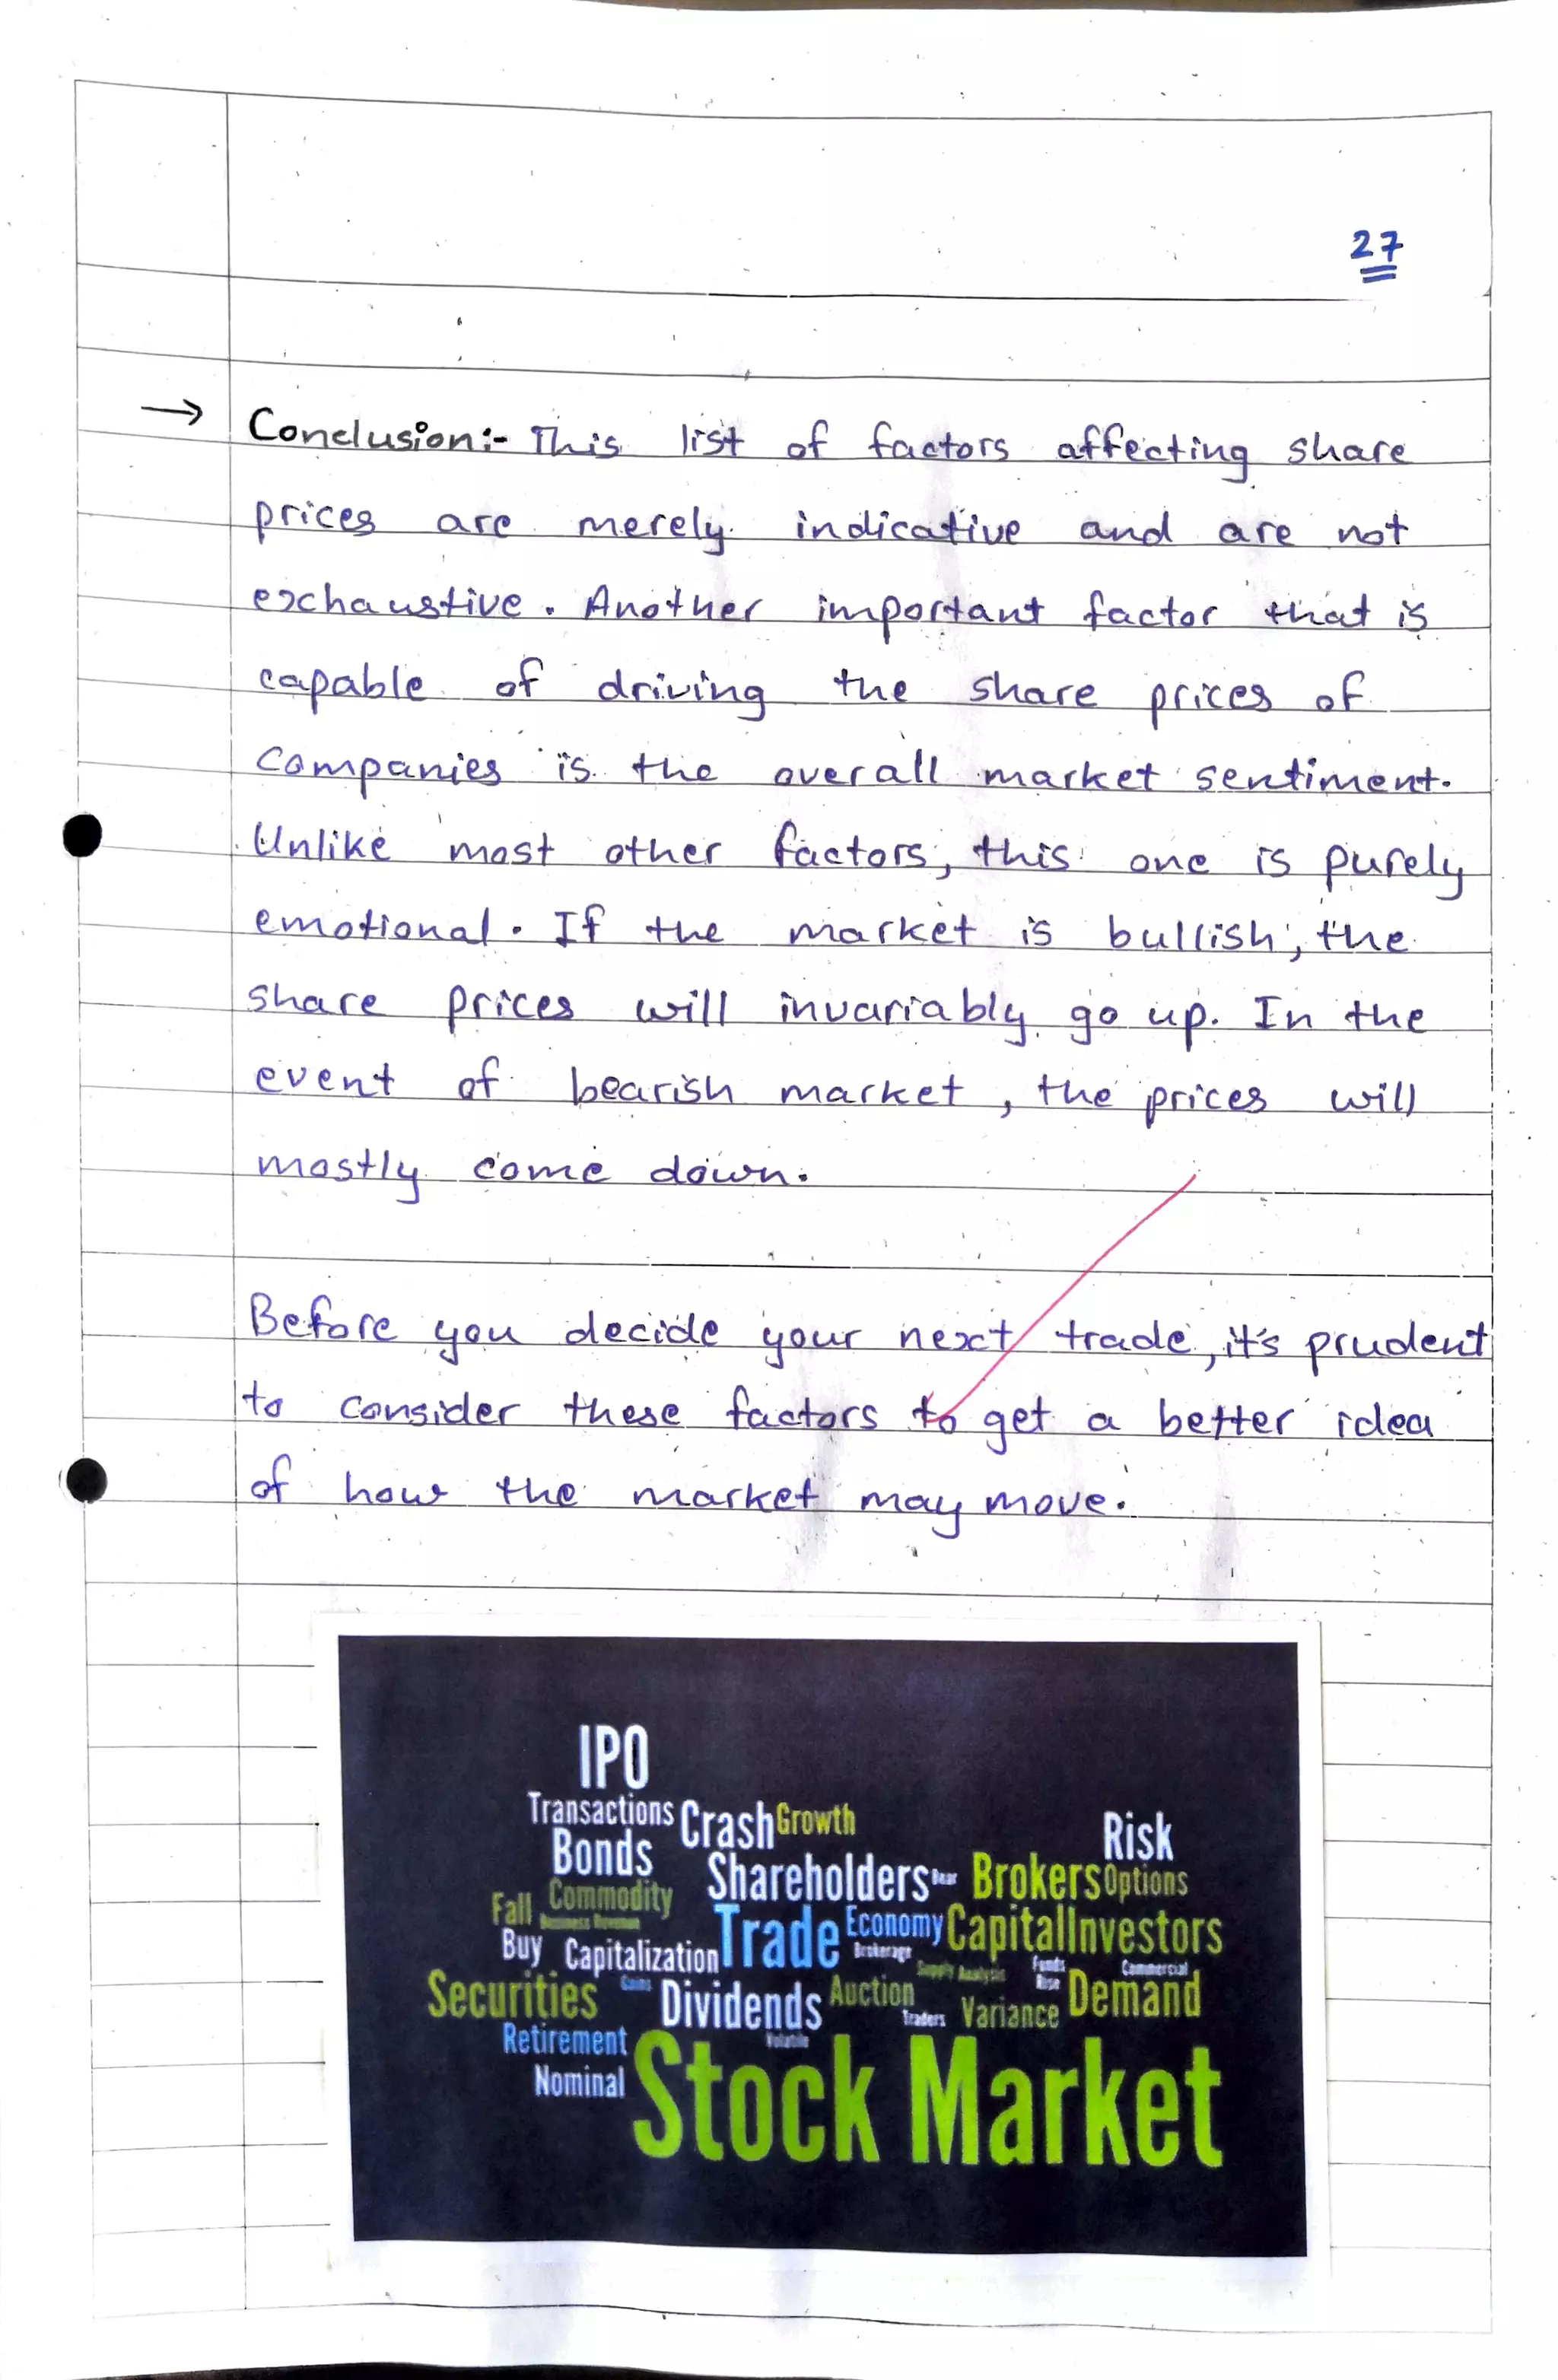 27
→ Conclusion:- This list of factors affecting share
prices are merely indicative and are not
exchaustive. Another important factor that is
capable of driving the share prices of
Companies is the overall market sentiment.
Unlike most other factors, this one is purely
emotional. If the market is bullish, the
share prices will invariably go up. In the
event of bearish market, the prices will
mostly come down.
Before you decide your next trade, it's prudent
to consider these factors to get a better idea
of how the market may move.
IPO
Transactions Crash Growth Risk
Bonds Shareholders Bear Brokers Options
Fall Commodity Trade Economy Capital Investors
Business Revenue
Buy Capitalization Brokerage Supply Analysis Funds Commercial
Securities Gains Dividends Auction Traders Variance Rise Demand
Retirement Volatile
Nominal Stock Market